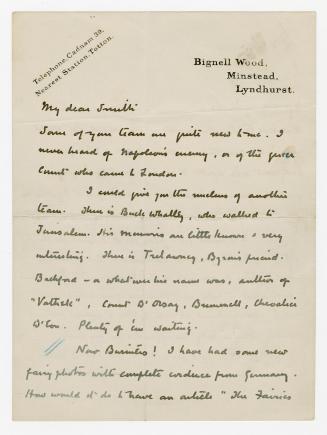 Telephone, Cadnam 39.
Nearest Station, Totton.
Bignell Wood,
Minstead,
Lyndhurst.
My dear Smith
Some of your team are quite new to me. I
never heard of Napoleon's enemy, or of the queer
Count who came to London.
I could give you the nucleus of another
team. There is Buck Whalley, who walked to
Jerusalem. His memoirs are little known & very
interesting. There is Trelawney, Byron's friend.
Beckford - or what ever his name was, author of
"Vathek", Count D'Orsay, Brummell, Chevalier
D'Eon. Plenty of 'em waiting.
Now Business! I have had some new
fairy photos with complete evidence from Germany.
How would it do to have an article "The Fairies